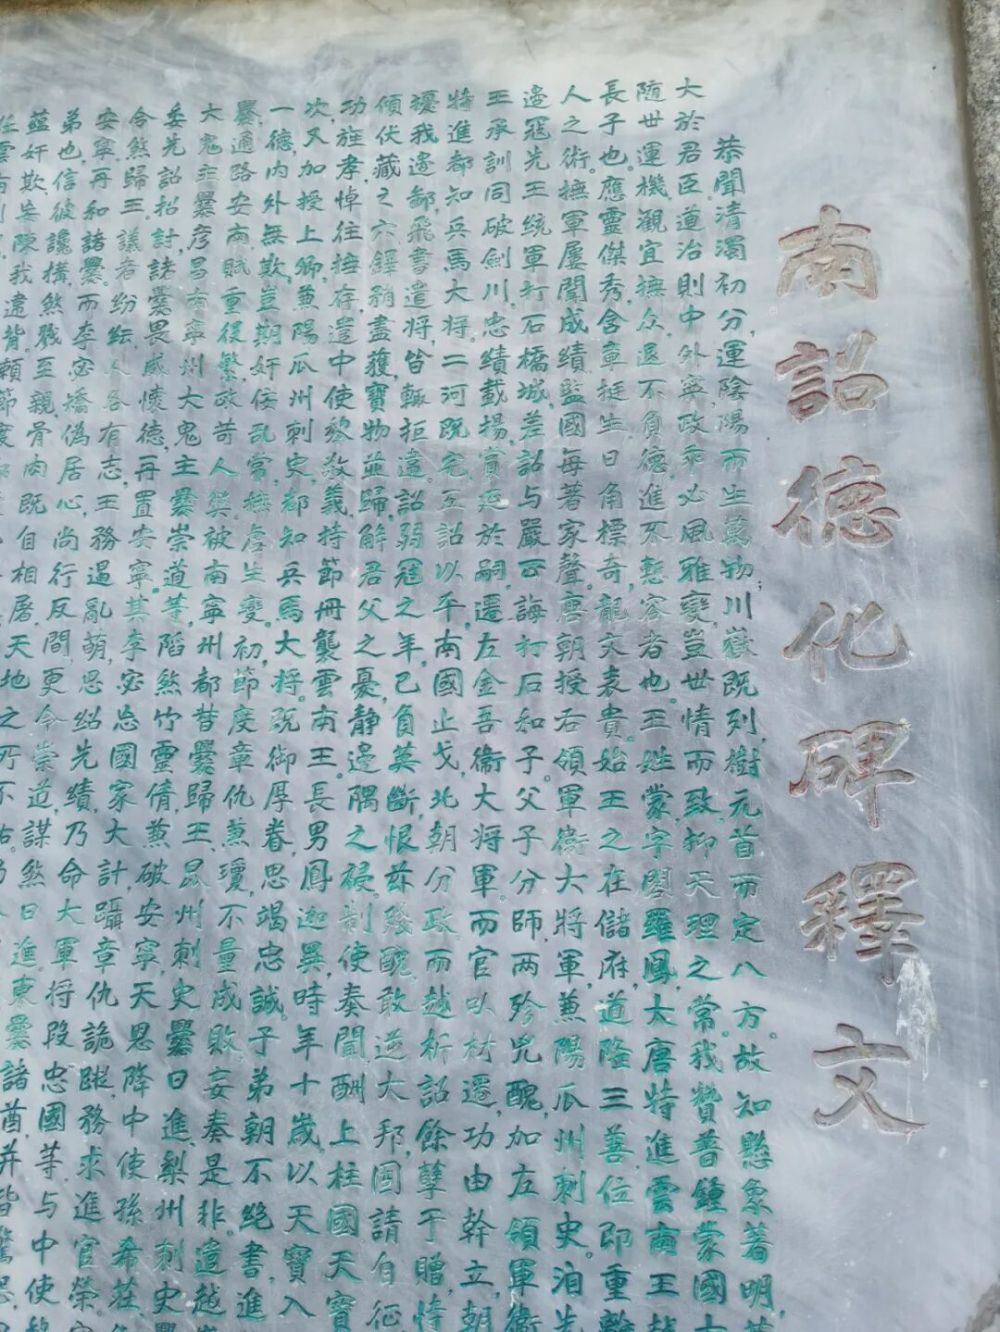 南詔德化碑釋文
恭聞清濁初分,運陰陽而生萬物;川嶽既列,樹元首而定八方。故知懸象著明,
大於君臣。道治則中外寧,政乖必風雅變。豈世情而致,抑天理之常。我贊普鍾蒙國大
随世運機,觀宜撫众,退不負德,進不慙容者也。王姓蒙,字閣羅鳳,大唐特進雲南王
長子也。應靈傑秀,含章挺生,日角標奇,龍文表貴。始王之在儲府,道隆三善,位即重離
人之術。撫軍屢聞成績,監國每著家聲。唐朝授右領軍衛大将軍,兼陽瓜州刺史。洎先
邊冦。先王統軍打石橋城,差詔与嚴正誨打石和子。父子分師,两殄兇醜,加左領軍衛
王承訓同破劍川。忠績載揚,賞延於嗣,遷左金吾衞大将軍。而官以材遷,功由幹立,朝
特進都知兵馬大将。二河既宅,五詔以平,南國止戈,北朝分政。而越析詔餘孽于贈,恃
擾我邊鄙。飛書遣将,皆輒拒違。詔弱冠之年,已負英斷,恨兹殘醜,敢逆大邦。固請自征
傾伏藏之穴,鐸矟盡獲,寶物並歸。解君父之憂,靜邊隅之祲。制使奏聞,酬上柱國。天寶
功旌孝,悼往撫存,遣中使黎敬義持節冊襲雲南王。長男鳳迦異,時年十歲,以天寶入
次又加授上卿,兼陽瓜州刺史,都知兵馬大将。既御厚眷,思竭忠誠,子弟朝不绝書,進
一德,内外無欺。豈期奸佞乱常,撫虐生變。初,節度章仇兼瓊,不量成敗,妄奏是非。遣越
爨通路安南,賦重役繁,政苛人弊。被南寧州都督爨歸王,昆州刺史爨日進,梨州刺史爨
大鬼主爨彦昌,南寧州大鬼主爨崇道等,陷煞竹靈倩,兼破安寧。天恩降中使孫希莊
委先詔招討,諸爨畏威懷德,再置安寧。其李宓忘國家大計,躡章仇詭蹤,務求進官榮。
令煞歸王。議者紛紜,人各有志。王務遏亂萌,思紹先績,乃命大軍将段忠國等,与中使
安寧,再和諸爨。而李宓矯偽居心,尚行反間,更令崇道,謀煞日進。東爨諸酋,并皆驚恐
弟也,信彼讒構,煞戮至親骨肉,既自相屠,天地之所不祐
蕴奸欺,妄陳我違背。賴節度